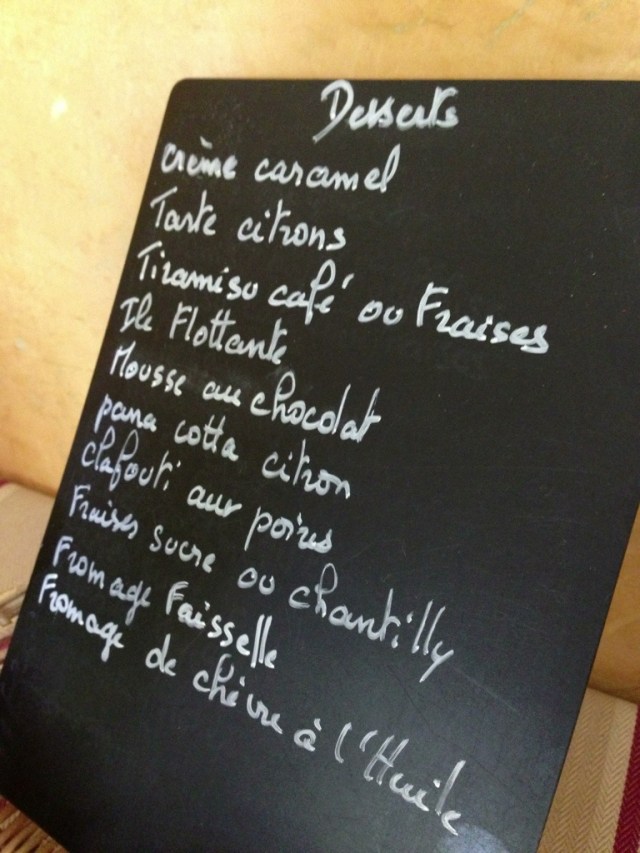 Desserts
crème caramel
Tarte citrons
Tiramisu café ou Fraises
Ile Flottante
Mousse au chocolat
pana cotta citron
clafouti aux poires
Fraises sucre ou chantilly
Fromage Faisselle
Fromage de chèvre à l'Huile